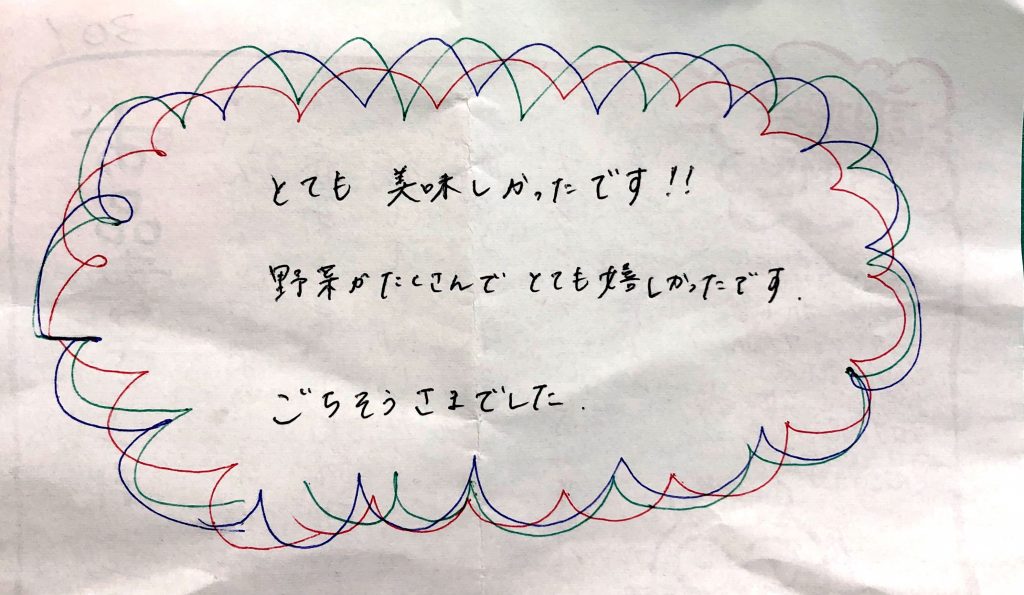 とても 美味しかったです!!
野菜がたくさんで とても嬉しかったです.
ごちそうさまでした.
301